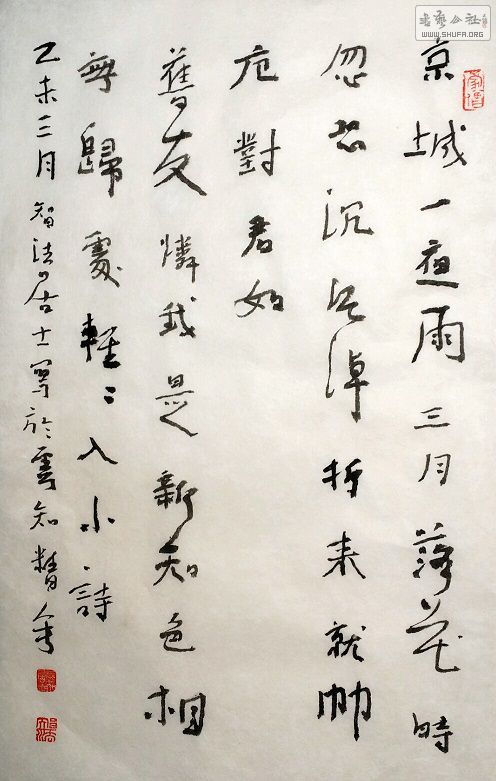 京城一夜雨三月落花時
忽沉淖折来就
卮對君如
舊友憐我是新知色相
無歸處輕〻入小詩
乙未三月智法居士寫於雲知精舍
书艺公社
WWW.SHUFA.ORG